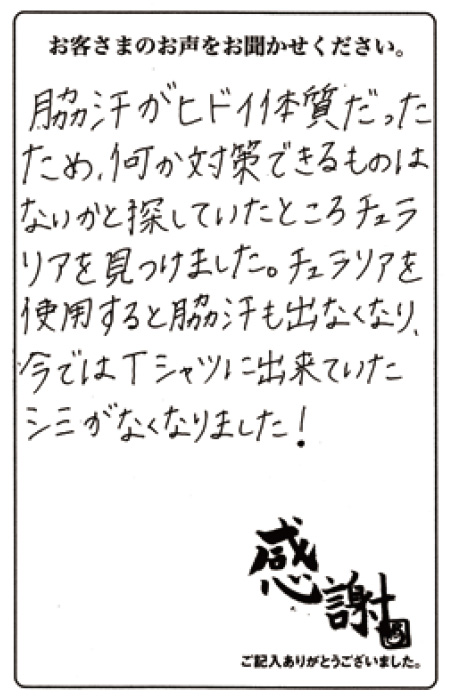 お客さまのお声をお聞かせください。
脇汗がヒドイ体質だった
ため、何か対策できるものは
ないかと探していたところチュラ
リアを見つけました。チュラリアを
使用すると脇汗も出なくなり、
今ではTシャツに出来ていた
シミがなくなりました！
感謝
ご記入ありがとうございました。